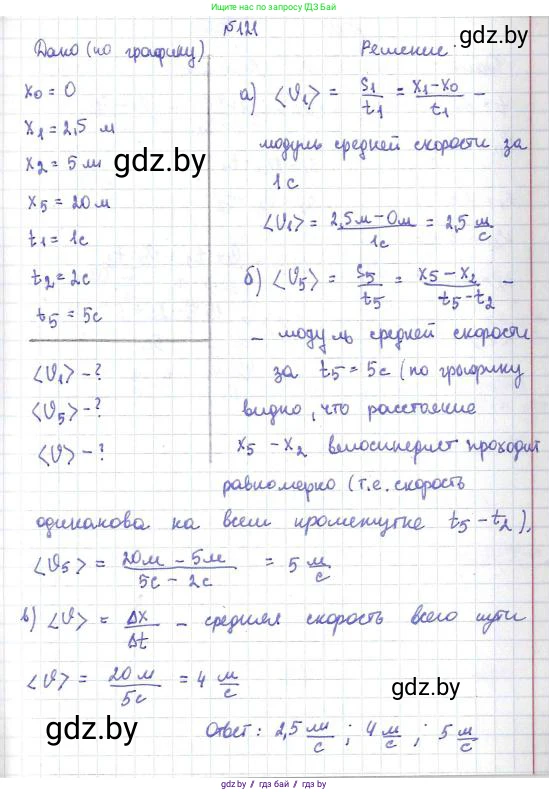 Меньше рекламы по запросу в поиске ГДЗ.БАЙ
№121
gdz.by
Дано (по графику)
Решение.
x0 = 0
x1 = 2,5 м
x2 = 5 м
gdz.by
x5 = 20 м
t1 = 1с
t2 = 2с
t5 = 5с
⟨υ1⟩ - ?
⟨υ5⟩ - ?
⟨υ⟩ - ?
а) ⟨υ1⟩ = s1/t1 = (x1-x0)/t1 -
модуль средней скорости за
1с
⟨υ1⟩ = (2,5м-0м)/1с = 2,5 м/с
б) ⟨υ5⟩ = s5/t5 = (x5-x2)/(t5-t2) -
- модуль средней скорости
за t5 = 5с (по графику
видно, что расстояние
x5 - x2 велосипедист проходит
равномерно (т.е. скорость
одинакова на всем промежутке t5 - t2).
⟨υ5⟩ = (20м - 5м)/(5с - 2с) = 5 м/с
в) ⟨υ⟩ = Δx/Δt - средняя скорость всего пути
⟨υ⟩ = 20м/5с = 4 м/с
gdz.by
Ответ: 2,5 м/с ; 4 м/с ; 5 м/с
gdz.by
gdz.by / гдз.бай / гдз.by